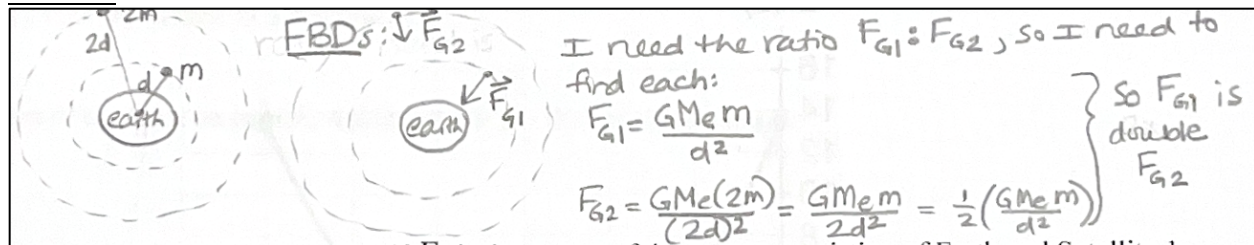 2m
2d
d
m
earth
FBDs: ↓ F⃗G2
earth
F⃗G1
I need the ratio FG1 : FG2, so I need to
find each:
FG1 = GMem / d²
FG2 = GMe(2m) / (2d)² = GMem / 2d² = ½(GMem / d²)
so FG1 is
double
FG2